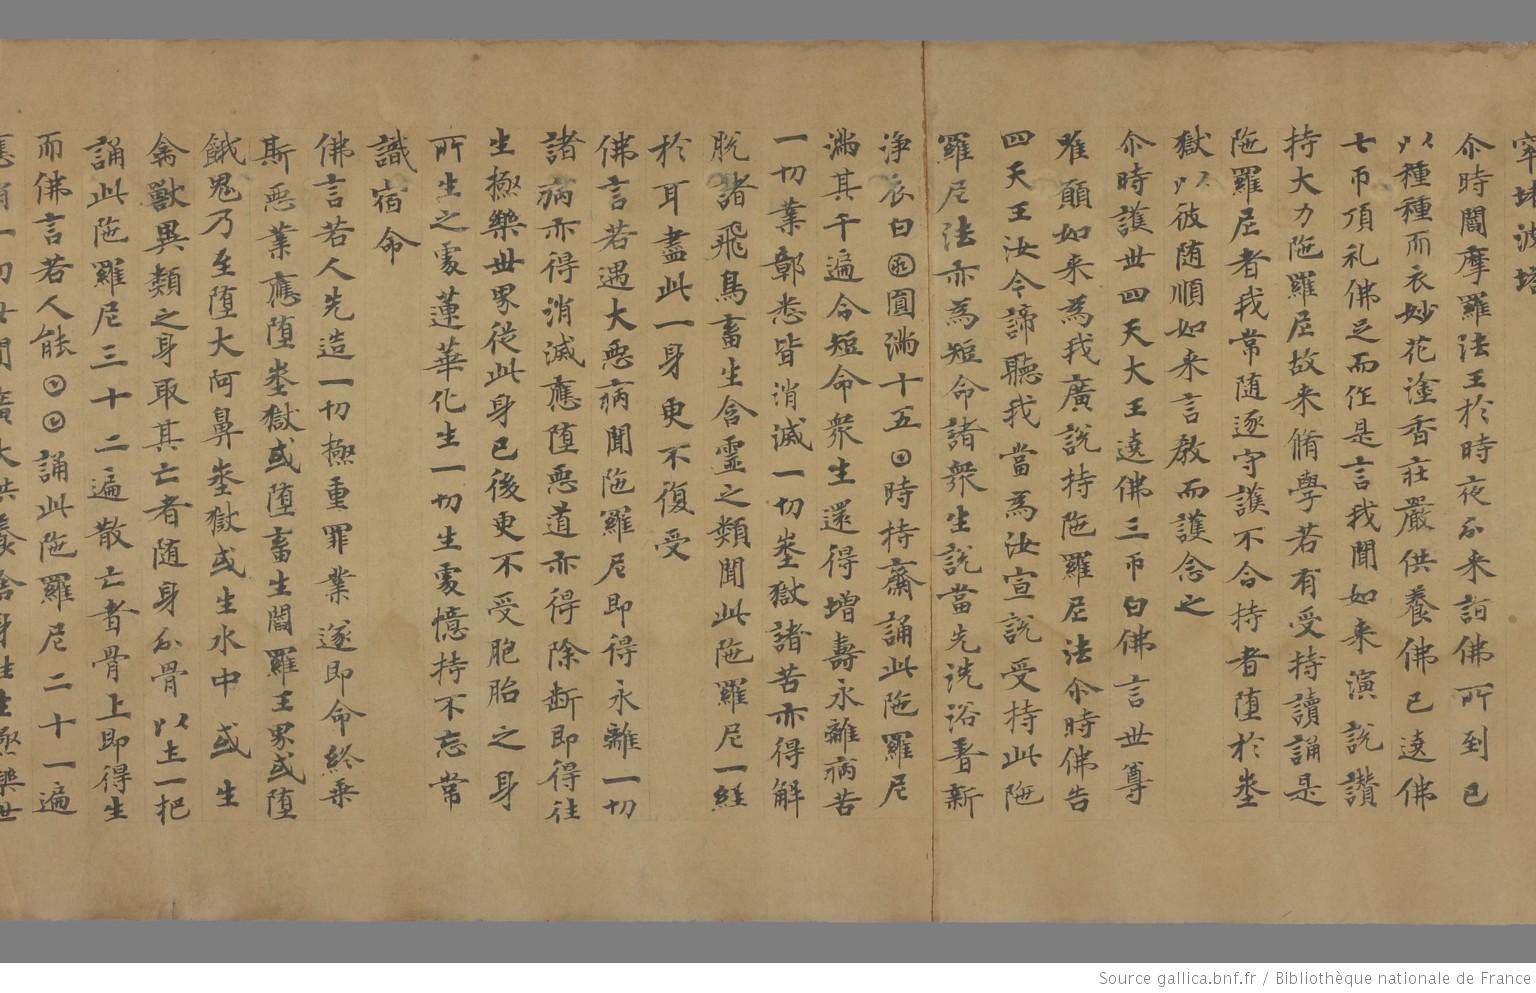 尒時閻摩羅法王於時夜分来詣佛所到已
以種種而衣妙花塗香莊嚴供養佛已遶佛
七帀頂礼佛足而作是言我聞如来演說讚
持大力陁羅尼故来脩學若有受持讀誦是
陁羅尼者我常随逐守護不令持者堕於埊
獄以彼随順如来言教而護念之
尒時護世四天大王遶佛三帀白佛言世尊
唯願如来為我廣說持陁羅尼法尒時佛告
四天王汝今諦聽我當為汝宣說受持此陁
羅尼法亦為短命諸衆生說當先洗浴著新
淨衣白圓滿十五〇時持齋誦此陁羅尼
滿其千遍令短命衆生還得增壽永離病苦
一切業鄣悉皆消滅一切埊獄諸苦亦得解
脫諸飛鳥畜生含靈之類聞此陁羅尼一經
於耳盡此一身更不復受
佛言若遇大惡病聞陁羅尼即得永離一切
諸病亦得消滅應堕惡道亦得除断即得往
生極樂世界従此身已後更不受胞胎之身
所生之處蓮華化生一切生處憶持不忘常
識宿命
佛言若人先造一切極重罪業遂即命終乗
斯惡業應堕埊獄或堕畜生閻羅王界或堕
餓鬼乃至堕大阿鼻埊獄或生水中或生
禽獸異類之身取其亡者随身分骨以土一把
誦此陁羅尼三十二遍散亡者骨上即得生
而佛言若人能誦此陁羅尼二十一遍